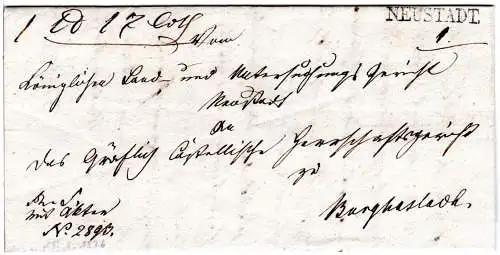 NEUSTADT
1 Pd 17 Loth
Vom 1
Königlichen Land und Untersuchungs Gericht
Neustadt
An
das Gräflich Castellische Herrschaftsgericht
zu
Burghaslach.
mit Akten
No. 2896.